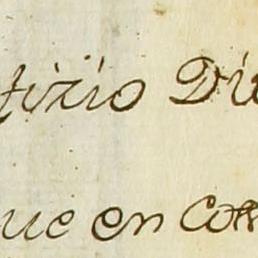 tizio Di
ue en Con